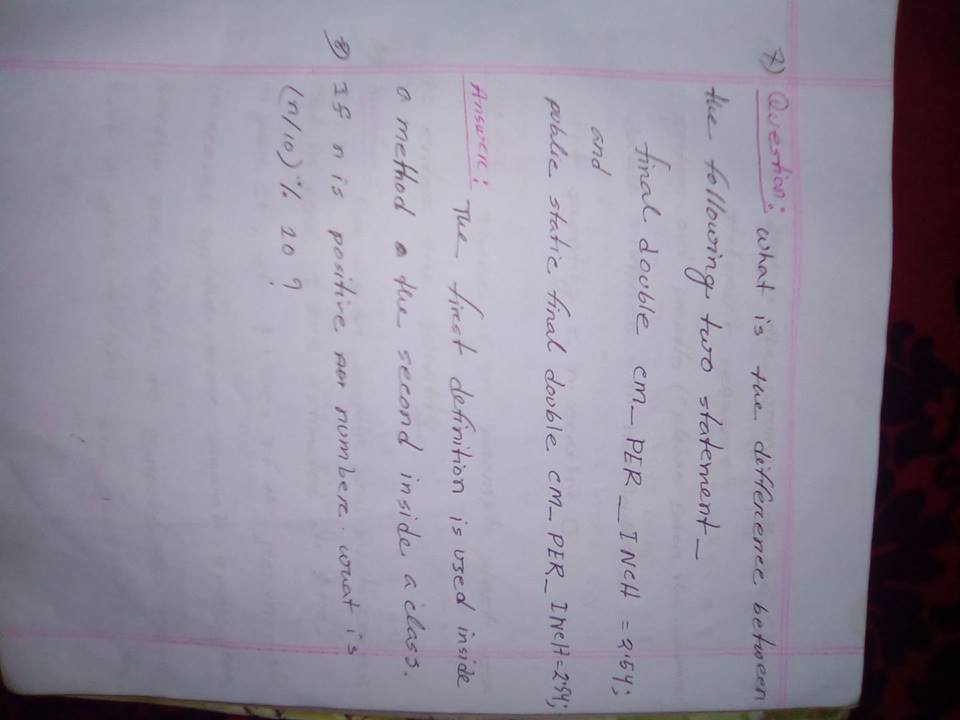 7) Question: what is the difference between
the following two statement_
final double cm_PER_INCH = 2.54;
and
public static final double cm_PER_INCH=2.54;
Answer: The first definition is used inside
a method the second inside a class.
8) If n is positive number. what is
(n/10) % 20 ?